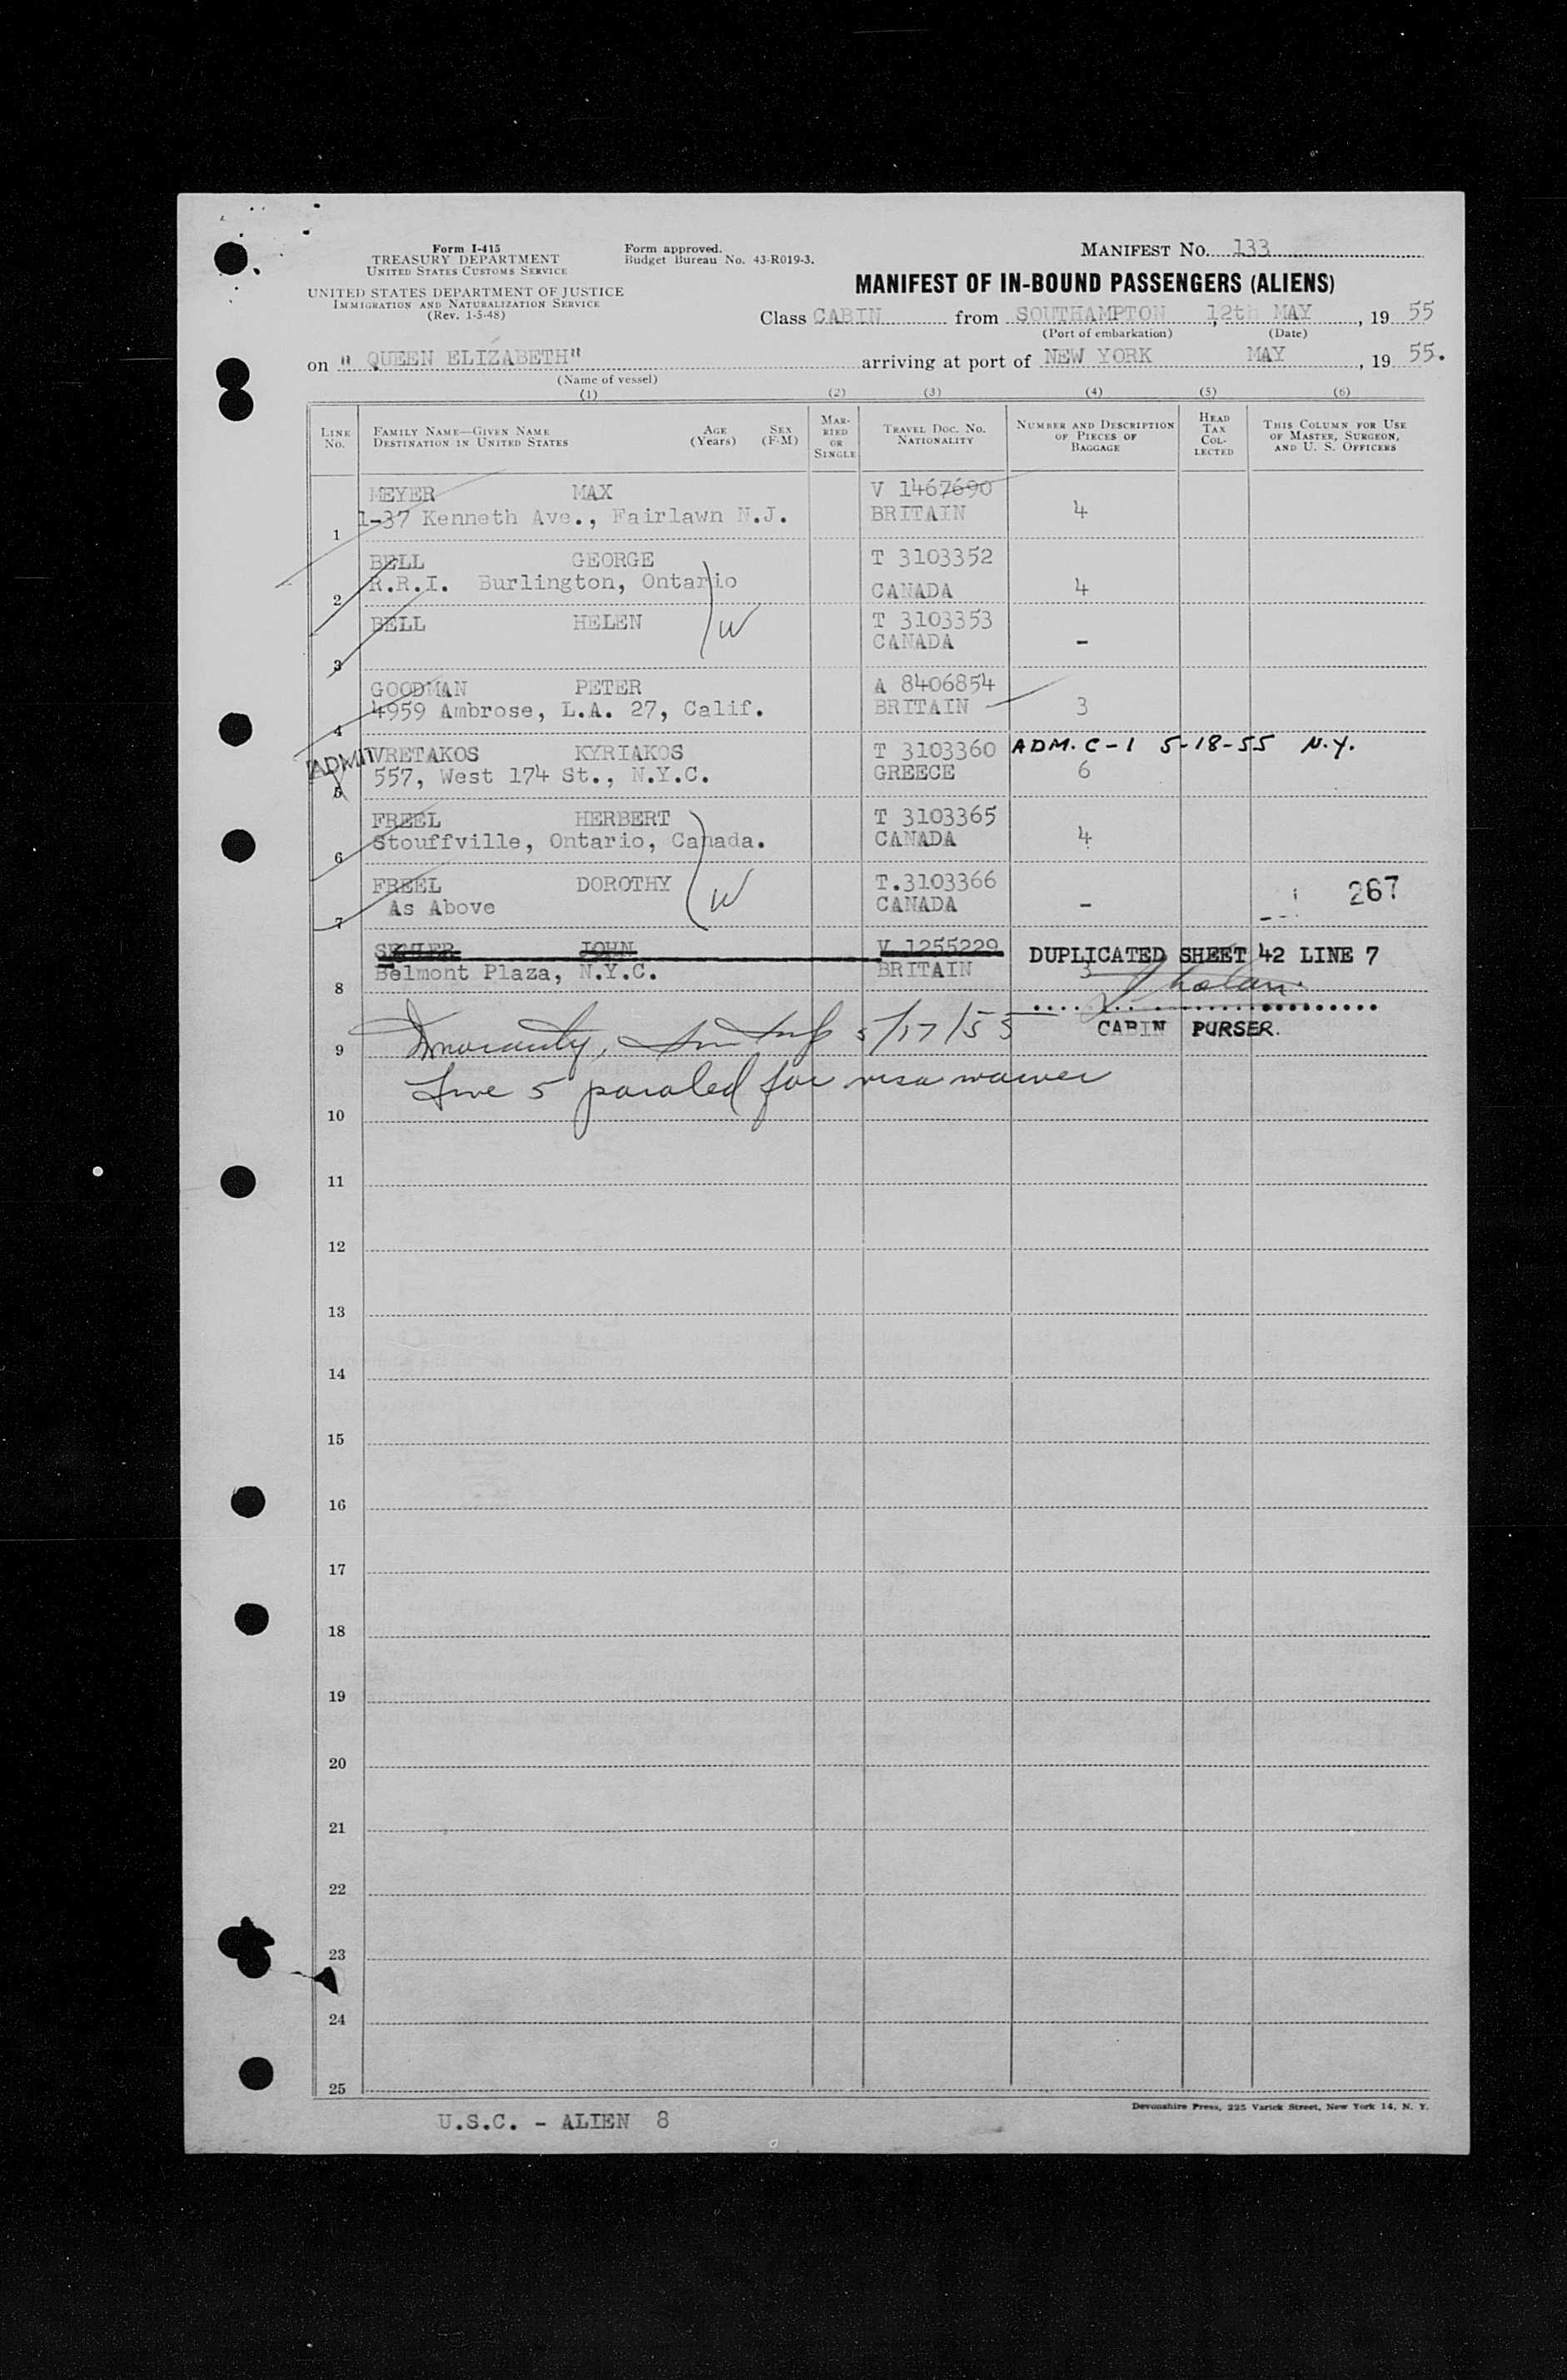 Form I-415
TREASURY DEPARTMENT
UNITED STATES CUSTOMS SERVICE
UNITED STATES DEPARTMENT OF JUSTICE
IMMIGRATION AND NATURALIZATION SERVICE
(Rev. 1-5-48)
Form approved.
Budget Bureau No. 43-R019-3.
MANIFEST NO. 133
MANIFEST OF IN-BOUND PASSENGERS (ALIENS)
Class CABIN from SOUTHAMPTON, 12th MAY, 19 55
(Port of embarkation) (Date)
on " QUEEN ELIZABETH" arriving at port of NEW YORK MAY, 19 55.
(Name of vessel)
(1) (2) (3) (4) (5) (6)
LINE NO. FAMILY NAME—GIVEN NAME DESTINATION IN UNITED STATES AGE (Years) SEX (F-M) MARRIED OR SINGLE TRAVEL DOC. NO. NATIONALITY NUMBER AND DESCRIPTION OF PIECES OF BAGGAGE HEAD TAX COLLECTED THIS COLUMN FOR USE OF MASTER, SURGEON, AND U. S. OFFICERS
MEYER MAX V 1467690
1 1-37 Kenneth Ave., Fairlawn N.J. BRITAIN 4
BELL GEORGE T 3103352
2 R.R.I. Burlington, Ontario CANADA 4
BELL HELEN W T 3103353
3 CANADA -
GOODMAN PETER A 8406854
4 4959 Ambrose, L.A. 27, Calif. BRITAIN 3
ADMIT VRETAKOS KYRIAKOS T 3103360 ADM. C-1 5-18-55 N.Y.
5 557, West 174 St., N.Y.C. GREECE 6
FREEL HERBERT T 3103365
6 Stouffville, Ontario, Canada. CANADA 4
FREEL DOROTHY W T.3103366
7 As Above CANADA - 267
JOHN V 1255229 DUPLICATED SHEET 42 LINE 7
8 Belmont Plaza, N.Y.C. BRITAIN 3
CABIN PURSER.
9 5/17/55
Line 5 paroled for visa waiver
10
11
12
13
14
15
16
17
18
19
20
21
22
23
24
25
U.S.C. - ALIEN 8
Devonshire Press, 225 Varick Street, New York 14, N. Y.